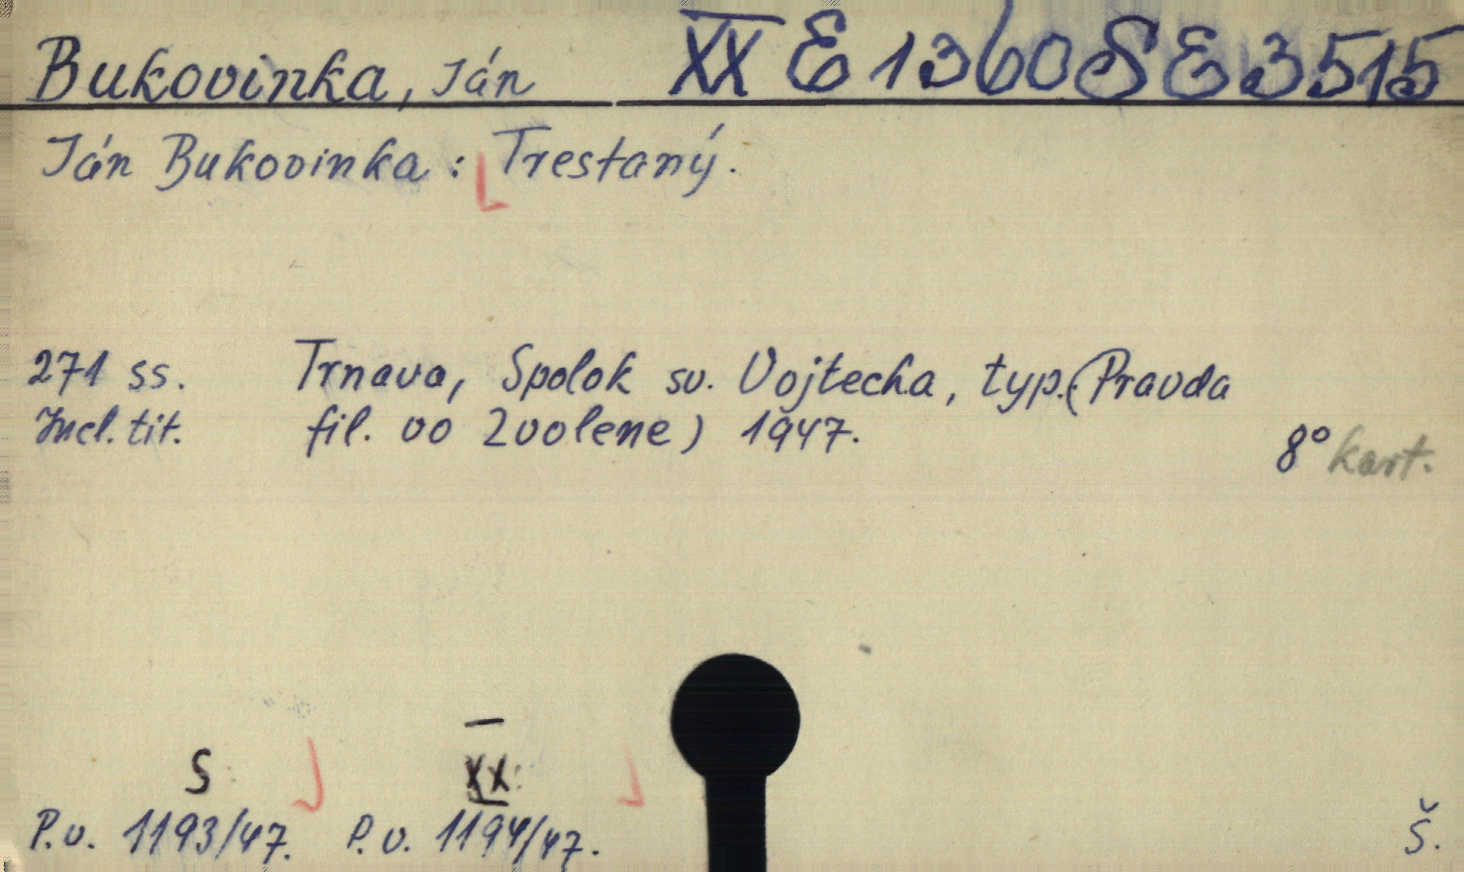 Bukovinka, Ján XX E 1360 SE 3515
Ján Bukovinka: Trestaný.
271 ss. Trnava, Spolok sv. Vojtecha, typ. (Pravda
Incl. tit. fil. vo Zvolene) 1947.
8° kart.
S XX
P.v. 1193/47. P.v. 1194/47. Š.